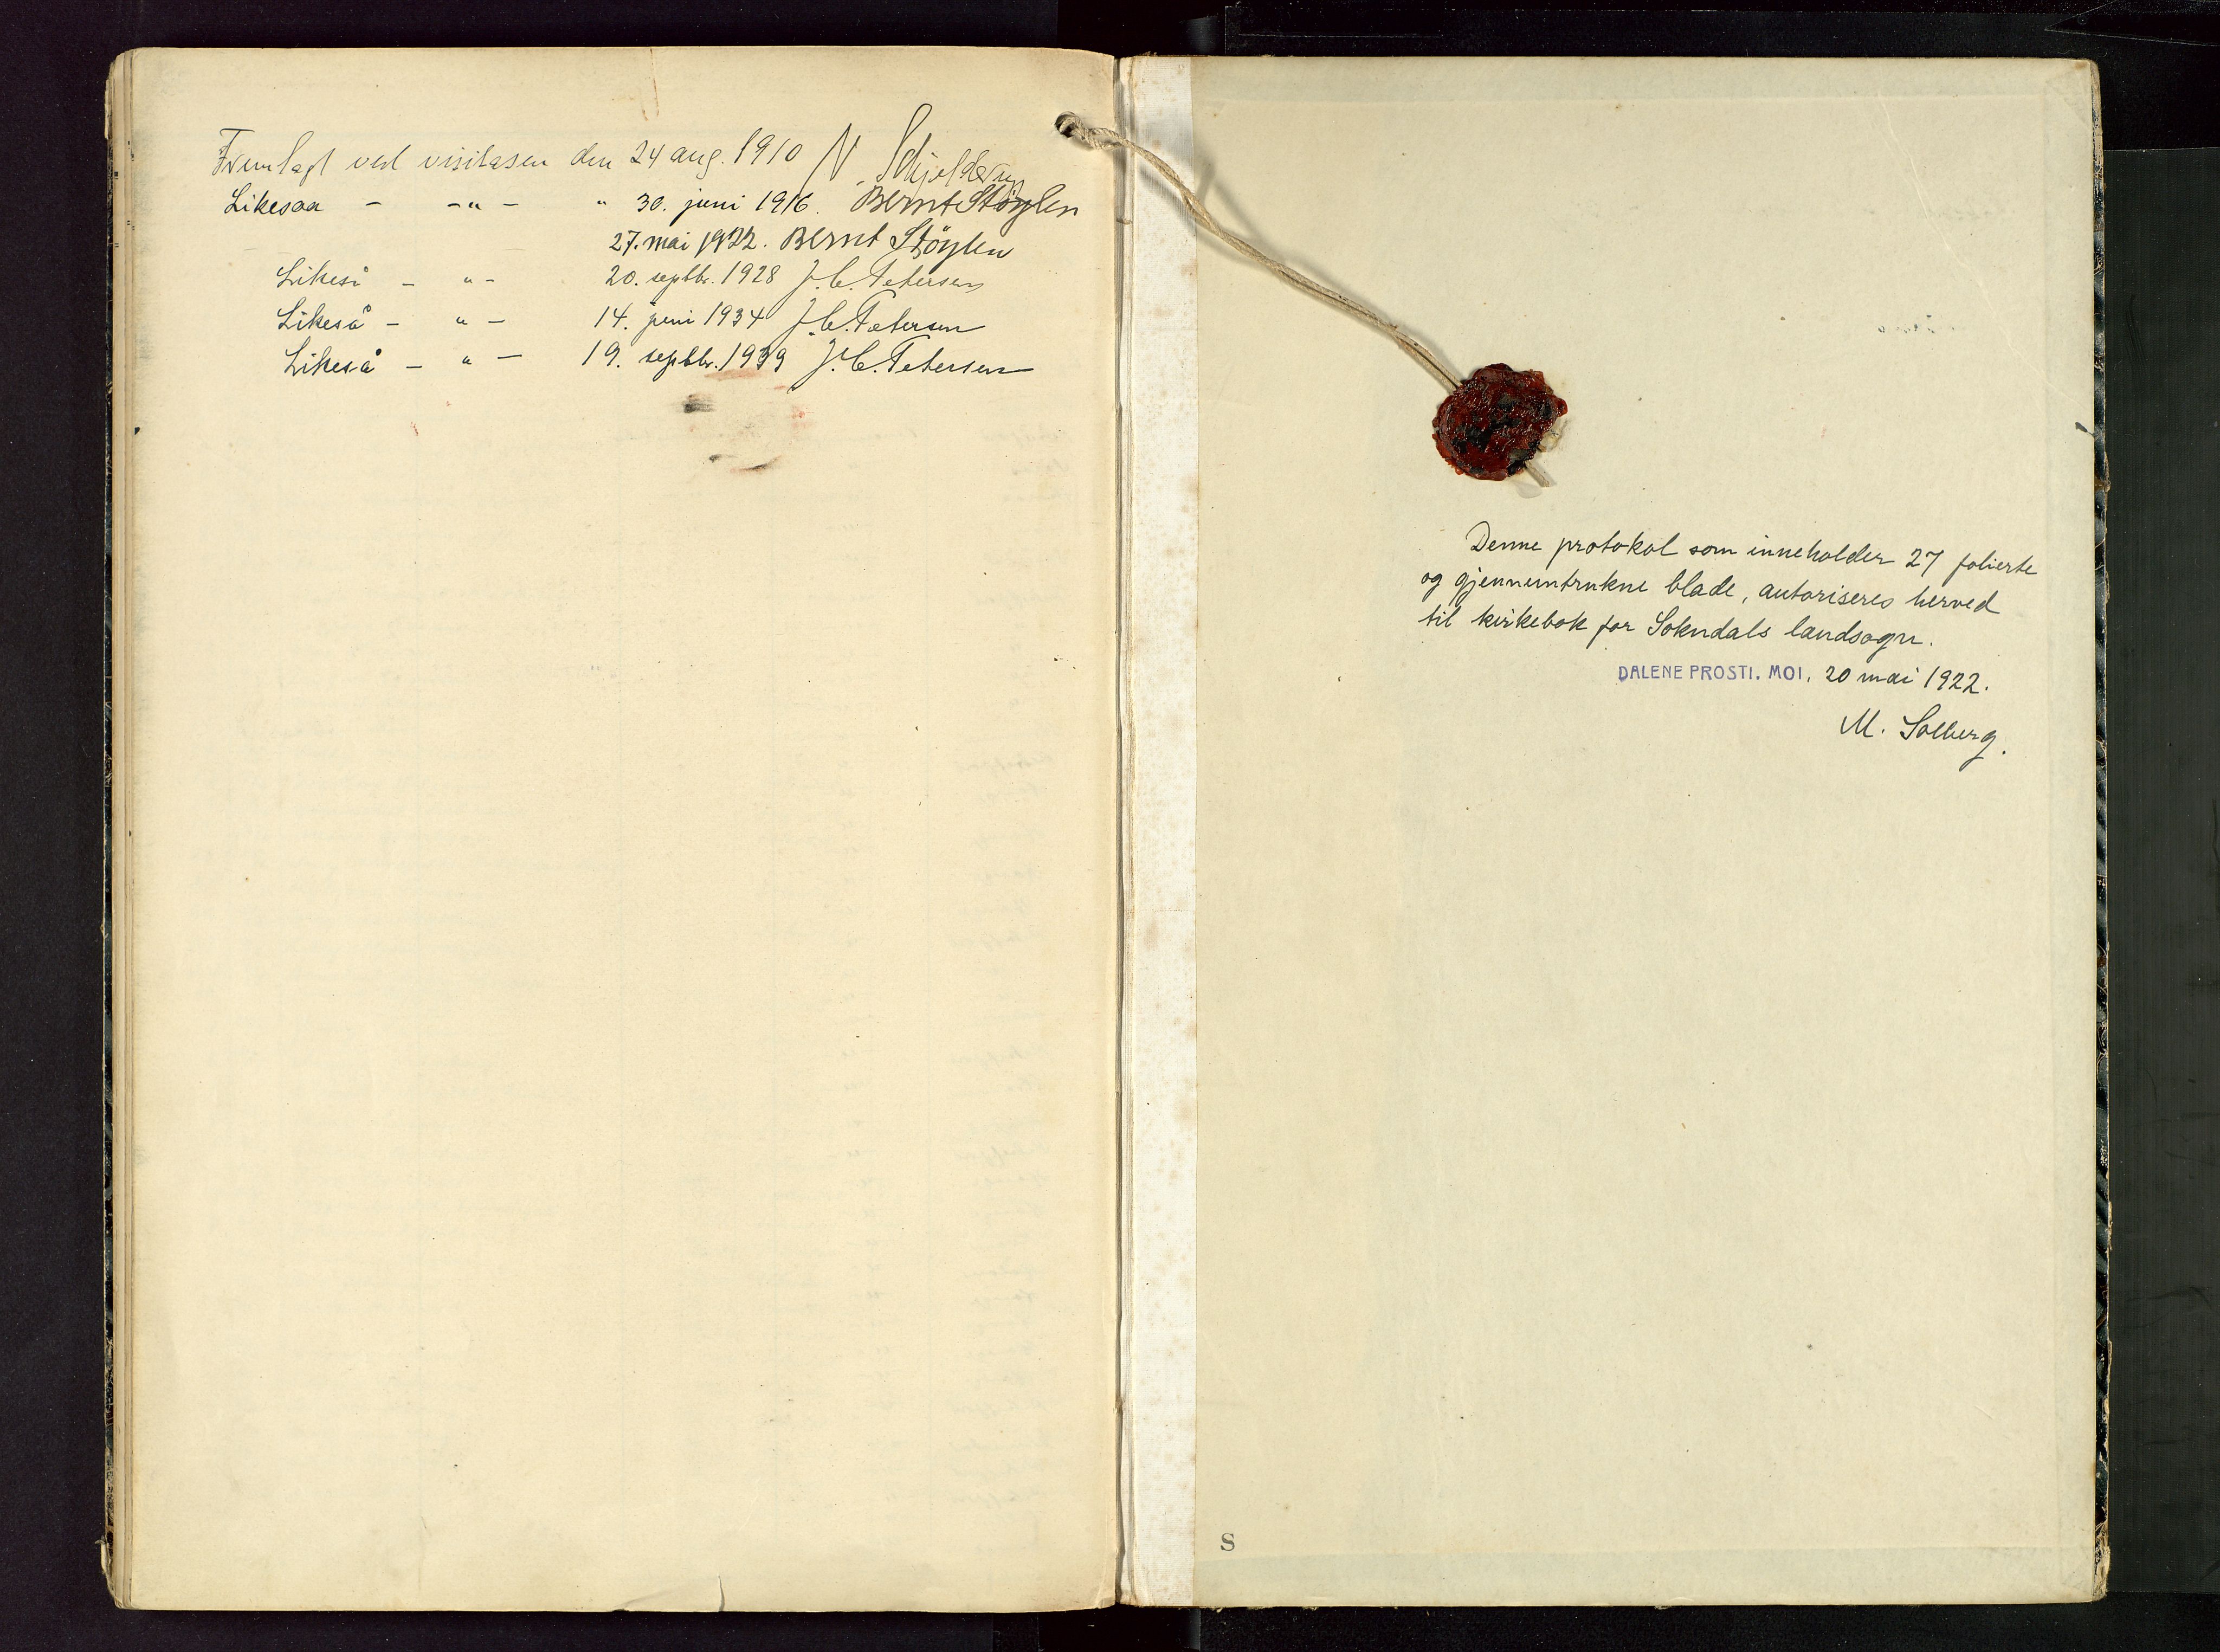 Fremlagt ved visitasen den 24 aug. 1910 N. Schjelderup
Likesaa - -"- " 30. juni 1916. Bernt Støylen
27. mai 1922. Bernt Støylen
Likeså - " - 20. septbr. 1928 J. C. Petersen
Likeså - " - 14. juni 1934 J. C. Petersen
Likeså - " - 19. septbr. 1939 J. C. Petersen
Denne protokol som inneholder 27 folierte
og gjennemtrukne blade, autoriseres herved
til kirkebok for Sokndals landsogn.
DALENE PROSTI. MOI, 20 mai 1922.
M. Solberg.
S